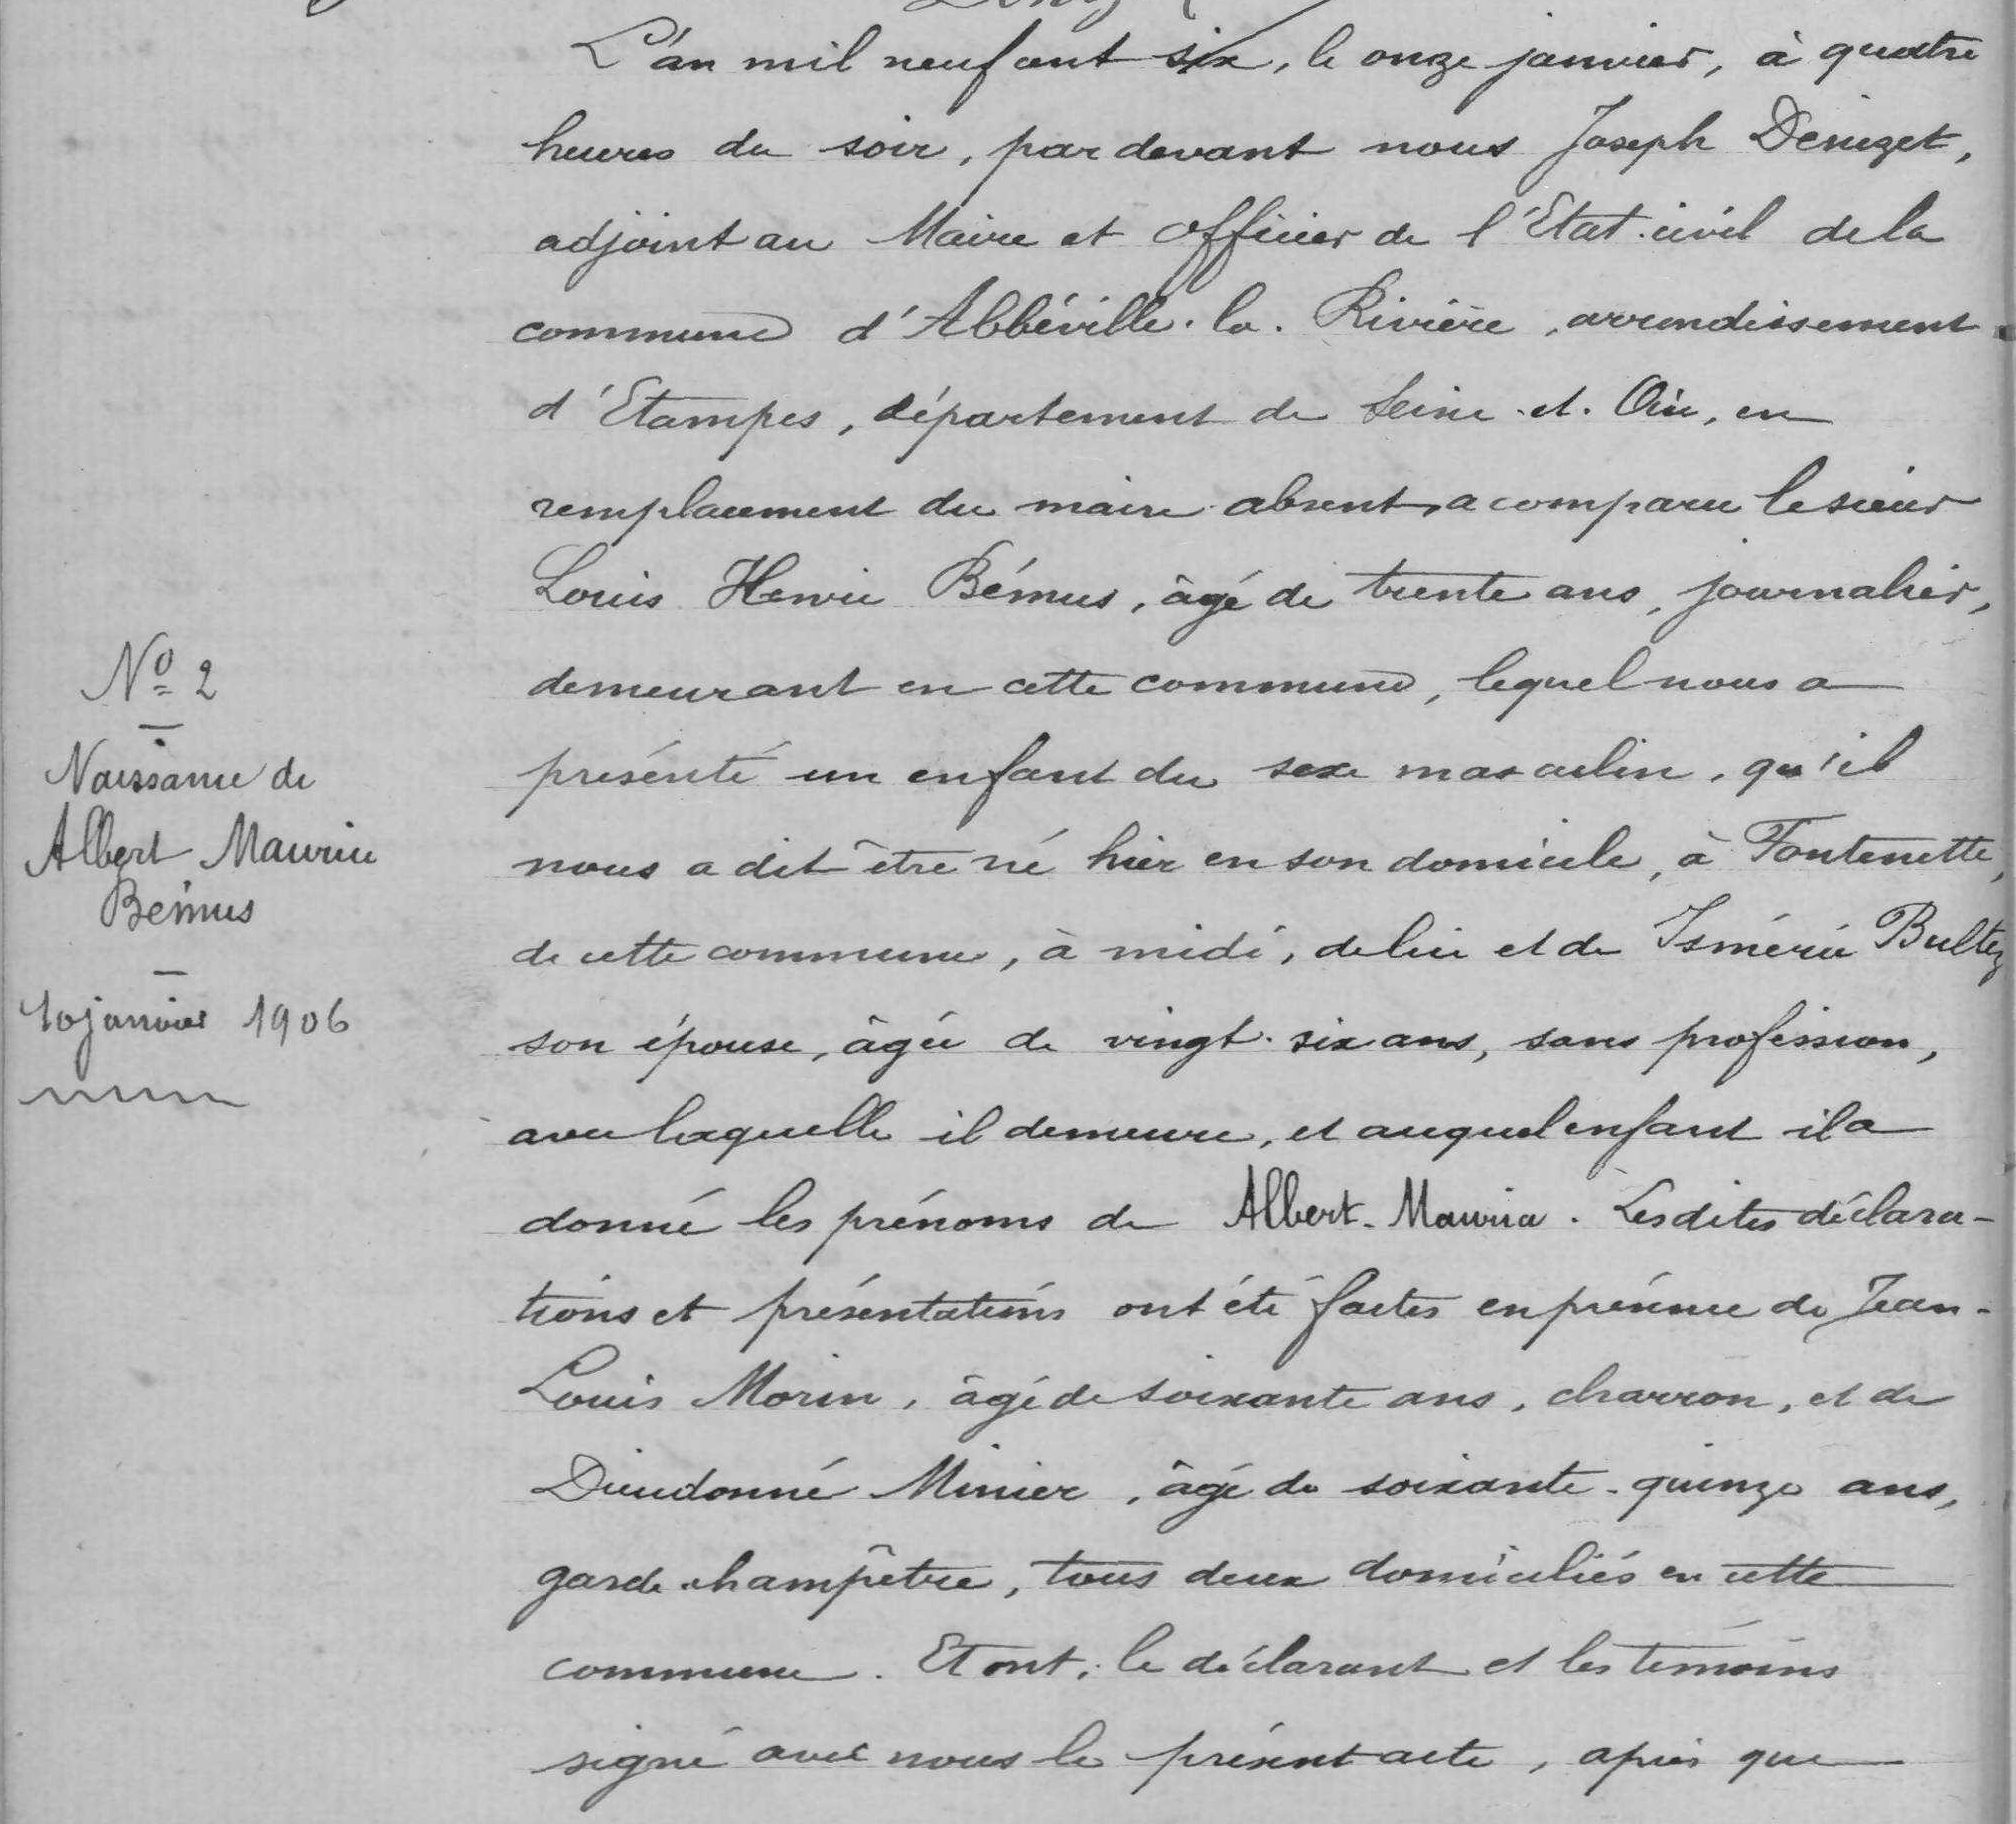 L'an mil neuf cent six, le onze janvier, à quatre
heures du soir, par devant nous Joseph Denizet,
adjoint au Maire et Officier de l'Etat-civil de la
commune d'Abbéville-la-Rivière, arrondissement
d'Etampes, département de Seine-et-Oise, en
remplacement du maire absent, a comparu le sieur
Louis Henri Bémus, âgé de trente ans, journalier,
demeurant en cette commune, lequel nous a
présenté un enfant du sexe masculin, qu'il
nous a dit être né hier en son domicile, à Fontenette,
de cette commune, à midi, de lui et de Ismérie Bultez
son épouse, âgée de vingt-six ans, sans profession,
avec laquelle il demeure, et auquel enfant il a
donné les prénoms de Albert-Maurice. Lesdites déclara-
tions et présentations ont été faites en présence de Jean-
Louis Morin, âgé de soixante ans, charron, et de
Dieudonné Minier, âgé de soixante-quinze ans,
garde-champêtre, tous deux domiciliés en cette
commune. Et ont, le déclarant et les témoins
signé avec nous le présent acte, après que
No 2
Naissance de
Albert Maurice
Bémus
10 janvier 1906